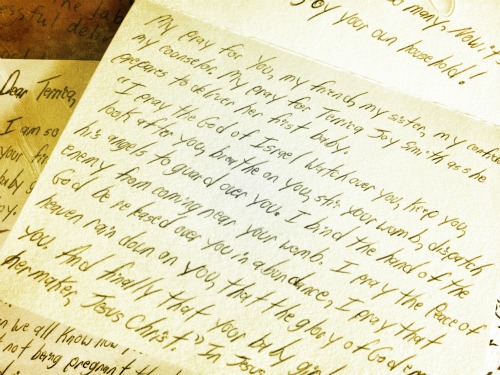 so many. Now
oy your own household!
My pray for you, my friend, my sister, my
my counselor. My pray for Terrica Joy Smith as she
prepares to deliver her first baby.
"I pray the God of Israel watch over you, keep you,
look after you, breathe on you, stir your womb, dispatch
his angels to guard over you. I bind the hand of the
enemy from coming near your womb. I pray the peace of
God be released over you in abundance, I pray that
heaven rain down on you, that the glory of God
you. And finally that your baby girl
her maker, Jesus Christ" In Jesus
Dear Terrica,
I am so
your
baby
we all know now,
not being pregnant